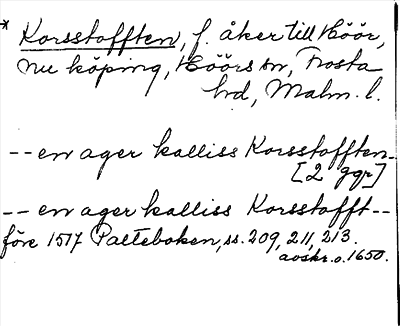 * Korsstofften, f. åker till Höör,
nu köping, Höörs sn, Frosta
hd, Malm. l.
-- en ager kalliss Korsstofften --
[2 ggr]
-- en ager kalliss Korsstofft --
före 1517 Palteboken, ss. 209, 211, 213.
avskr. o. 1650.